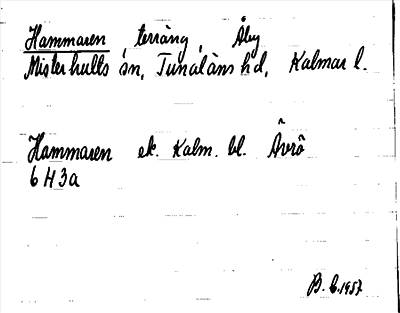 Hammaren terräng, Åby
Misterhults sn, Tunaläns hd, Kalmar l.
Hammaren ek. Kalm. bl. Ävrö
6 H 3a
B. E. 1957